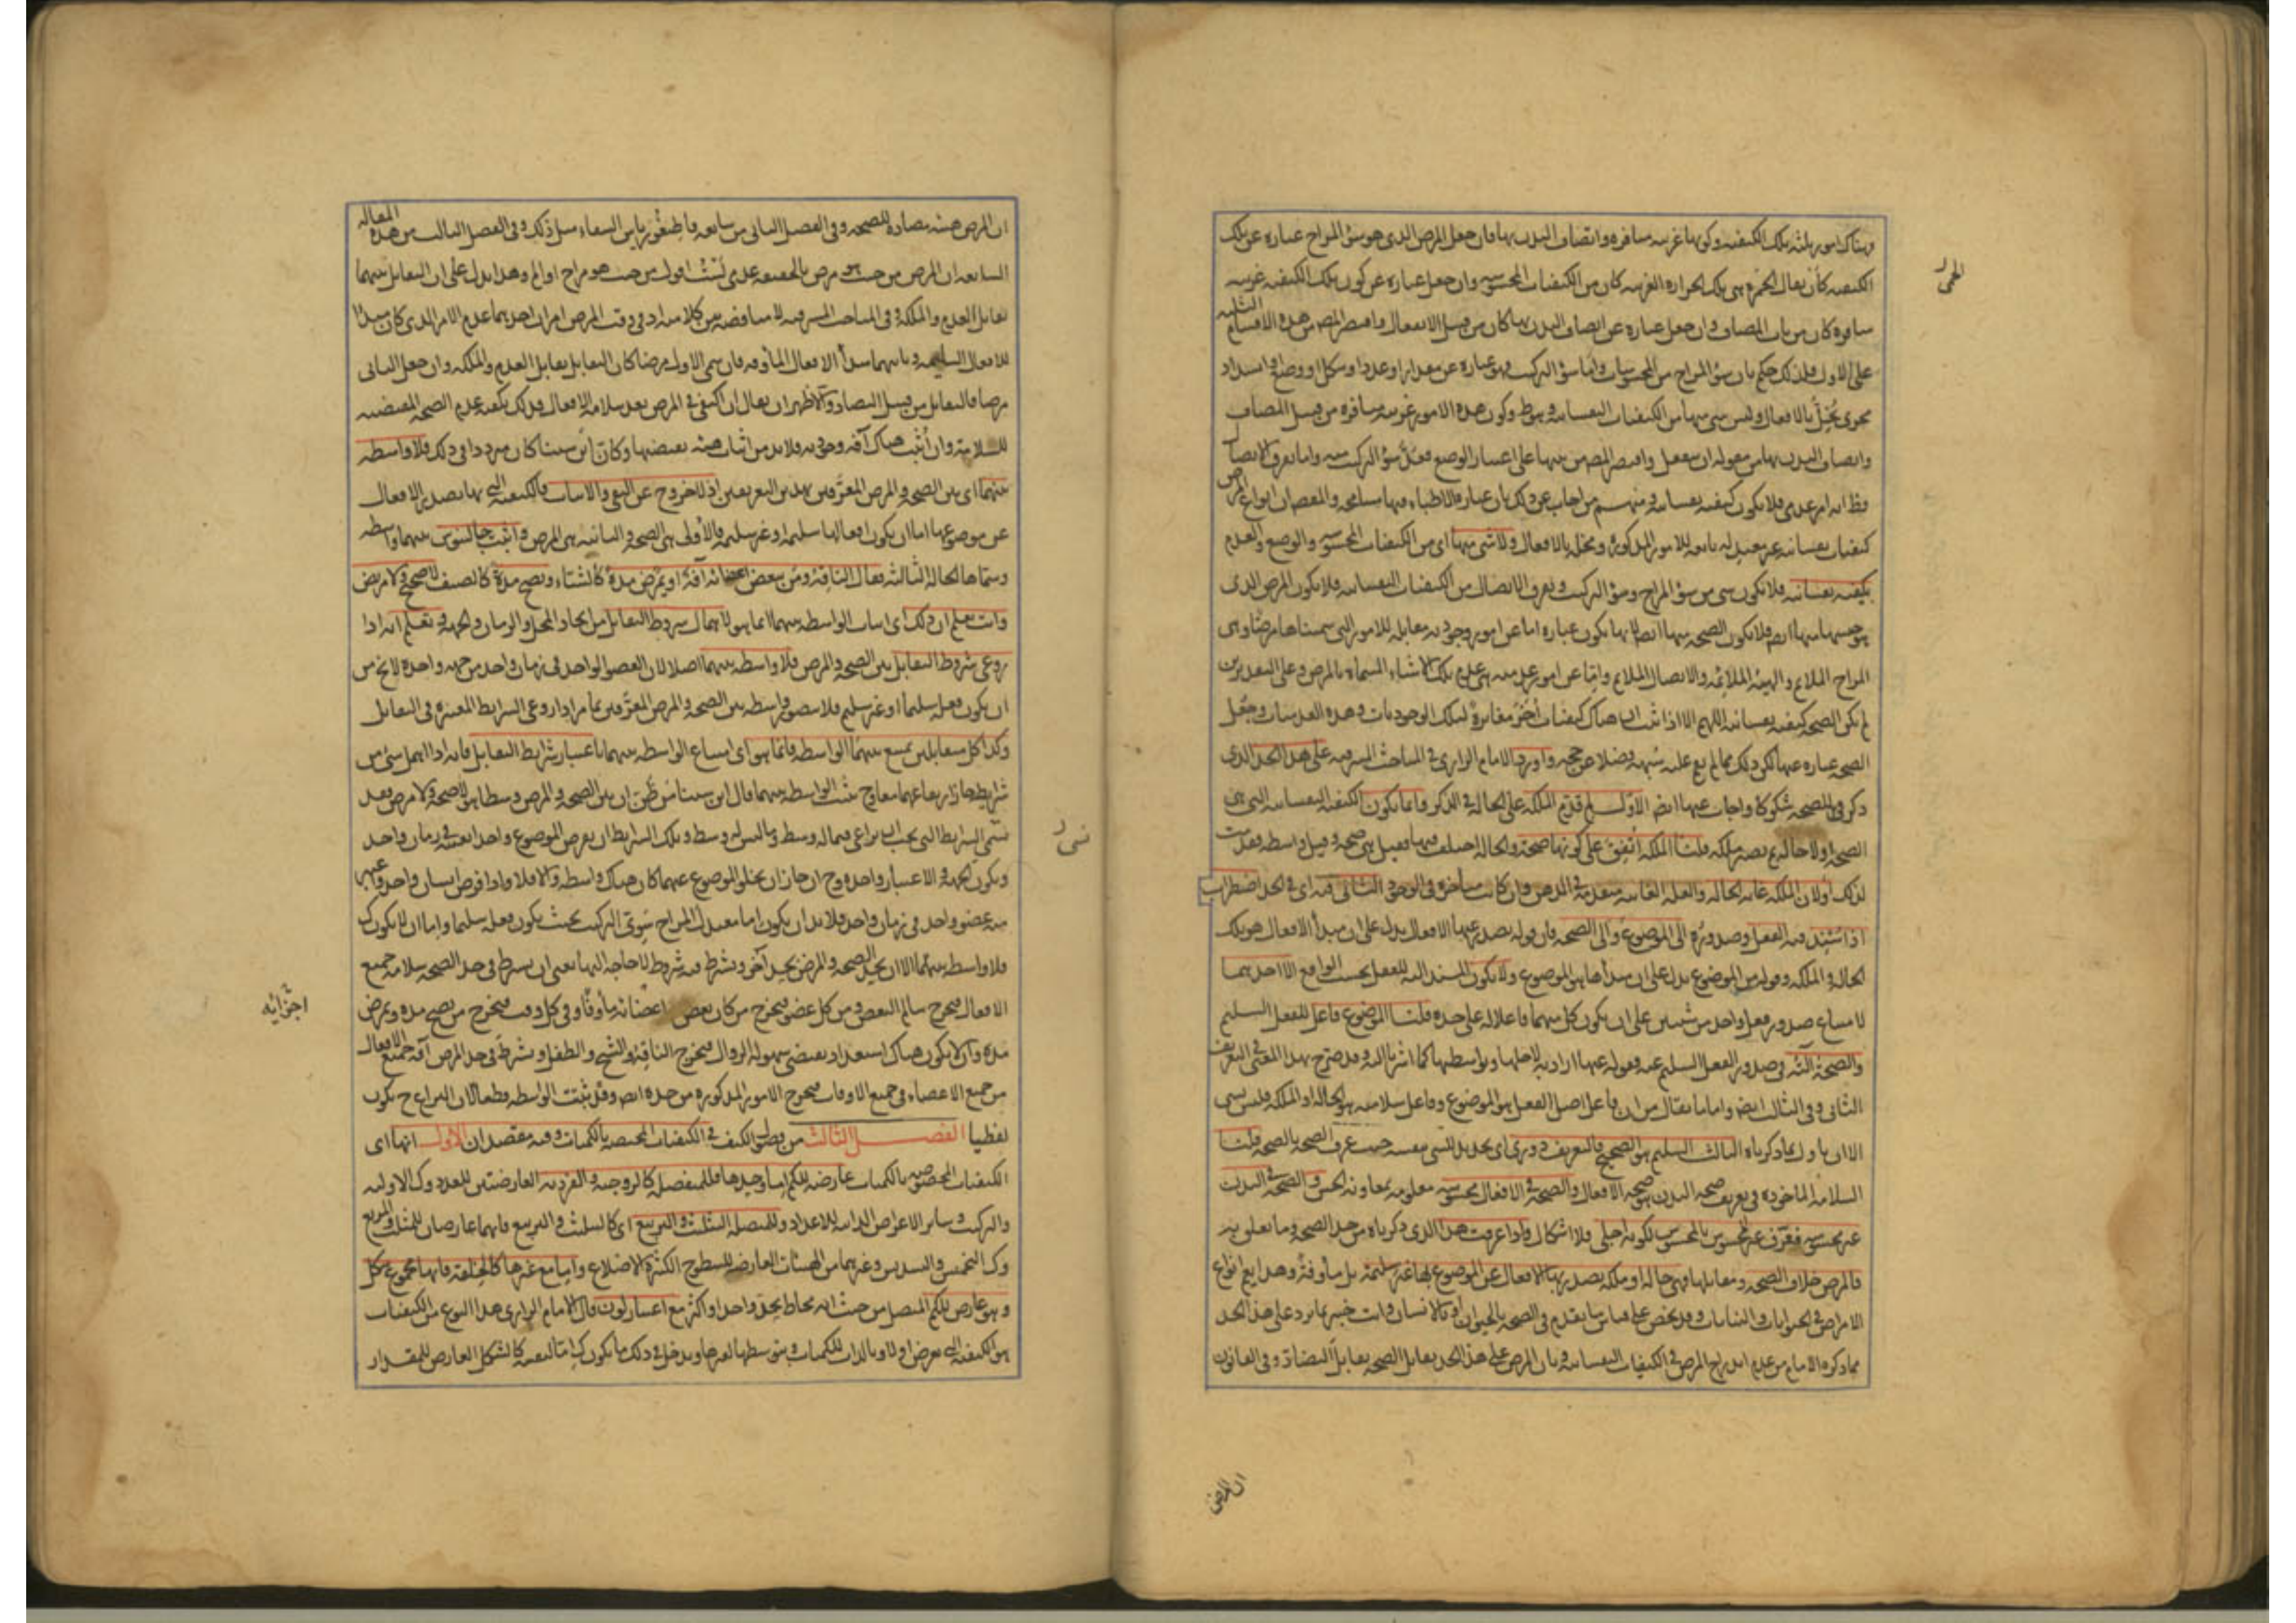 وهناك امور ثلثة تلك الكيفية وكونها غريبة منافرة واتصاف البدن بها فان جعل المرض الذى هو سؤ المزاج عبارة عن تلك
الكيفية كأن يقال الحمى هى تلك الحرارة الغريبة كان من الكيفيات المحسوسة وان جعل عبارة عن كون تلك الكيفية غريبة
منافرة كان من باب المضاف وان جعل عبارة عن اتصاف البدن بها كان من قبيل الانفعال واقتصر المص من هذه الاقسام الثلثة
على الاول فلذلك حكم بان سؤ المزاج من المحسوسات واما سؤ التركيب فهو عبارة عن مقدار او عدد او شكل او وضع او انسداد
مجرى يخل بالافعال وليس شى منها من الكيفيات النفسانية وكون هذه الامور غريبة منافرة من قبيل المضاف
واتصاف البدن بها من مقولة ان ينفعل واقتصر المص من بينها على اعتبار الوضع فعد سؤ التركيب منه واما تفرق الاتصال
فظ انه امر عدمى فلا يكون كيفية نفسانية ومنهم من اجاب عن ذلك بان عبارة الاطباء فيها مسامحة والمقص ان انواع المرض
كيفيات نفسانية تابعة للامور المذكورة ومخلة بالافعال ولا شى منها اى من الكيفيات المحسوسة والوضع والعدم
بكيفية نفسانية فلا يكون شى من سؤ المزاج وسؤ التركيب وتفرق الاتصال من الكيفيات النفسانية فلا يكون المرض الذى
هو جنسها منها ايض فلا تكون الصحة منها ايض لانها تكون عبارة اما عن امور وجودية مقابلة للامور التى سميناها مرضا وهى
المزاج الملايم والهيئة الملائمة والاتصال الملايم واما عن امور عدمية هى عدم تلك الاشياء المسماة بالمرض وعلى التقديرين
لم تكن الصحة كيفية نفسانية اللهم الا اذا ثبت ان هناك كيفيات اخر مغايرة لتلك الوجوديات وهذه العدميات وجعل
الصحة عبارة عنها لكن ذلك مما لم يقم عليه شبهة فضلا عن حجة واورد الامام الرازى فى المباحث المشرقية على هذا الحد الذى
ذكر فى الصحة شكوكا واجاب عنها ايض الاول لم قدم الملكة على الحالة فى الذكر وانما يكون الكيفية النفسانية التى هى
الصحة اولا حالة ثم تصير ملكة قلنا الملكة اتفق على كونها صحة والحالة اختلف فيها فقيل هى صحة وقيل واسطة فقدمت
لذلك او لان الملكة غاية الحالة والعلة الغائية متقدمة فى الذهن وان كانت متاخرة فى الوجود الثانى فيه اى فى الحد اضطراب
اذ اسند فيه الفعل وصدوره الى الموضوع والى الصحة فان قوله يصدر عنها الافعال يدل على ان مبدأ الافعال هو تلك
الحالة والملكة وقوله من الموضوع يدل على ان مبدأها هو الموضوع ولا يكون المسند اليه للفعل بحسب الواقع الا احدهما
لامتناع صدور فعل واحد من شيئين على ان يكون كل منهما فاعلا له على حدة قلنا الموضوع فاعل للفعل السليم
والصحة آلته فى صدور الفعل السليم عنه فقوله عنها اراد به لاجلها وبواسطتها كما اشرنا اليه وقد صرح بهذا المعنى فى التعريف
الثانى وفى الثالث ايض واما ما يقال من ان فاعل اصل الفعل هو الموضوع وفاعل سلامته هو الحالة او الملكة فليس بشى
الا ان ياول بما ذكرناه الثالث السليم هو الصحيح فالتعريف دورى اى تحديد للشى بنفسه حيث عرف الصحة بالصحة قلنا
السلامة الماخوذة فى تعريف صحة البدن هو صحة الافعال والصحة فى الافعال محسوسة معلومة بمعاونة الحس والصحة فى البدن
غير محسوسة فعرف غير المحسوس بالمحسوس لكونه اجلى فلا اشكال واذا عرفت هذا الذى ذكرناه من حد الصحة وما يتعلق به
فالمرض خلاف الصحة ومقابلها فهى حالة او ملكة يصدر بها الافعال عن الموضوع لها غير سليمة بل مأوفة وهذا يعم انواع
الامراض فى الحيوانات والنباتات وقد يخص على قياس ما تقدم فى الصحة بالحيوان او بالانسان وانت خبير بما يرد على هذا الحد
مما ذكره الامام من عدم اندراج المرض فى الكيفيات النفسانية وبان المرض على هذا الحد يقابل الصحة تقابل التضاد وفى القانون
ان المرض
ان المرض هيئة مضادة للصحة وفى الفصل الثانى من سابعة قاطيغورياس الشفاء مثل ذلك وفى الفصل الثالث من هذه المقالة
السابعة ان المرض من حيث هو مرض بالحقيقة عدمى لست اقول من حيث هو مزاج او الم وهذا يدل على ان التقابل بينهما
تقابل العدم والملكة وفى المباحث المشرقية لا مناقضة بين كلاميه اذ فى وقت المرض امران احدهما عدم الامر الذى كان مبدأ
للافعال السليمة وثانيهما مبدأ الافعال المأوفة فان سمى الاول مرضا كان التقابل تقابل العدم والملكة وان جعل الثانى
مرضا فالتقابل من قبيل التضاد والاظهر ان يقال ان اكتفى فى المرض بعدم سلامة الافعال فذلك يكفيه عدم الصحة المقتضية
للسلامة وان اثبت هناك آفة وجودية فلا بد من اثبات هيئة تقتضيها وكان ابن سينا كان مترددا فى ذلك فلا واسطة
بينهما اى بين الصحة والمرض المعرفين بهذين التعريفين اذ لا خروج عن النفى والاثبات فالكيفية التى بها تصدر الافعال
عن موضوعها اما ان يكون افعالها سليمة او غير سليمة فالاولى هى الصحة والثانية هى المرض واثبت جالينوس بينهما واسطة
وسماها الحالة الثالثة فقال الناقه ومن ببعض اعضائه آفة او يمرض مدة كالشتاء ويصح مدة كالصيف لا صحيح ولا مريض
وانت تعلم ان ذلك اى اثبات الواسطة بينهما انما هو لاهمال شروط التقابل من اتحاد المحل والزمان والجهة وتعلم انه اذا
روعى شروط التقابل بين الصحة والمرض فلا واسطة بينهما اصلا لان العضو الواحد فى زمان واحد من جهة واحدة لا يخ من
ان يكون فعله سليما او غير سليم فلا يتصور واسطة بين الصحة والمرض المعرفين بما مر اذا روعى الشرايط المعتبرة فى التقابل
وكذا كل متقابلين يمتنع بينهما الواسطة فانما هو اى امتناع الواسطة بينهما باعتبار شرايط التقابل فانه اذا اهمل شى من
شرايطه جاز ارتفاعهما معا وح تثبت الواسطة بينهما قال ابن سينا من ظن ان بين الصحة والمرض وسطا هو لا صحة ولا مرض فقد
نسى الشرايط التى يجب ان يراعى فيما له وسط وما ليس له وسط وتلك الشرايط ان يفرض الموضوع واحدا بعينه فى زمان واحد
ويكون الجهة والاعتبار واحدة وح ان جاز ان يخلو الموضوع عنهما كان هناك واسطة والا فلا واذا فرض انسان واحد واعتبر
منه عضو واحد فى زمان واحد فلا بد ان يكون اما معتدل المزاج سوى التركيب بحيث يكون فعله سليما واما ان لا يكون كك
فلا واسطة بينهما الا ان يحد الصحة والمرض بحد آخر ويشترط فيه شروط لا حاجة اليها يعنى ان يشترط فى حد الصحة سلامة جميع
الافعال ليخرج سالم البعض ومن كل عضو ليخرج من كان بعض اعضائه مأوفا وفى كل وقت ليخرج من يصح مدة ويمرض
اجزائه
مدة وان لا يكون هناك استعداد يقتضى سهولة الزوال ليخرج الناقه والشيخ والطفل ويشترط فى حد المرض آفة جميع الافعال
من جميع الاعضاء فى جميع الاوقات ليخرج الامور المذكورة من حده ايض وقد ثبتت الواسطة قطعا الا ان النزاع ح يكون
لفظيا الفصل الثالث من فصول الكيف فى الكيفيات المختصة بالكميات وفيه مقصدان الاول انها اى
الكيفيات المخصوصة بالكميات عارضة للكم اما وحدها فللمنفصل كالزوجية والفردية العارضتين للعدد وك الاولية
والتركيب وساير الاعراض الذاتية للاعداد وللمتصل التثليث والتربيع اى كالتثليث والتربيع فانهما عارضان للمثلث والمربع
وك التخميس والتسديس وغيرهما من الهيئات العارضة للسطوح الكثيرة الاضلاع واما مع غيرها كالخلقة فانها مجموع شكل
وهو عارض للكم المتصل من حيث انه محاط بحد واحد او اكثر مع اعتبار لون قال الامام الرازى هذا النوع من الكيفيات
هو الكيفية التى تعرض اولا وبالذات للكميات وبتوسطها لغيرها ويدخل فى ذلك ما يكون كالشكل العارض للمقدار